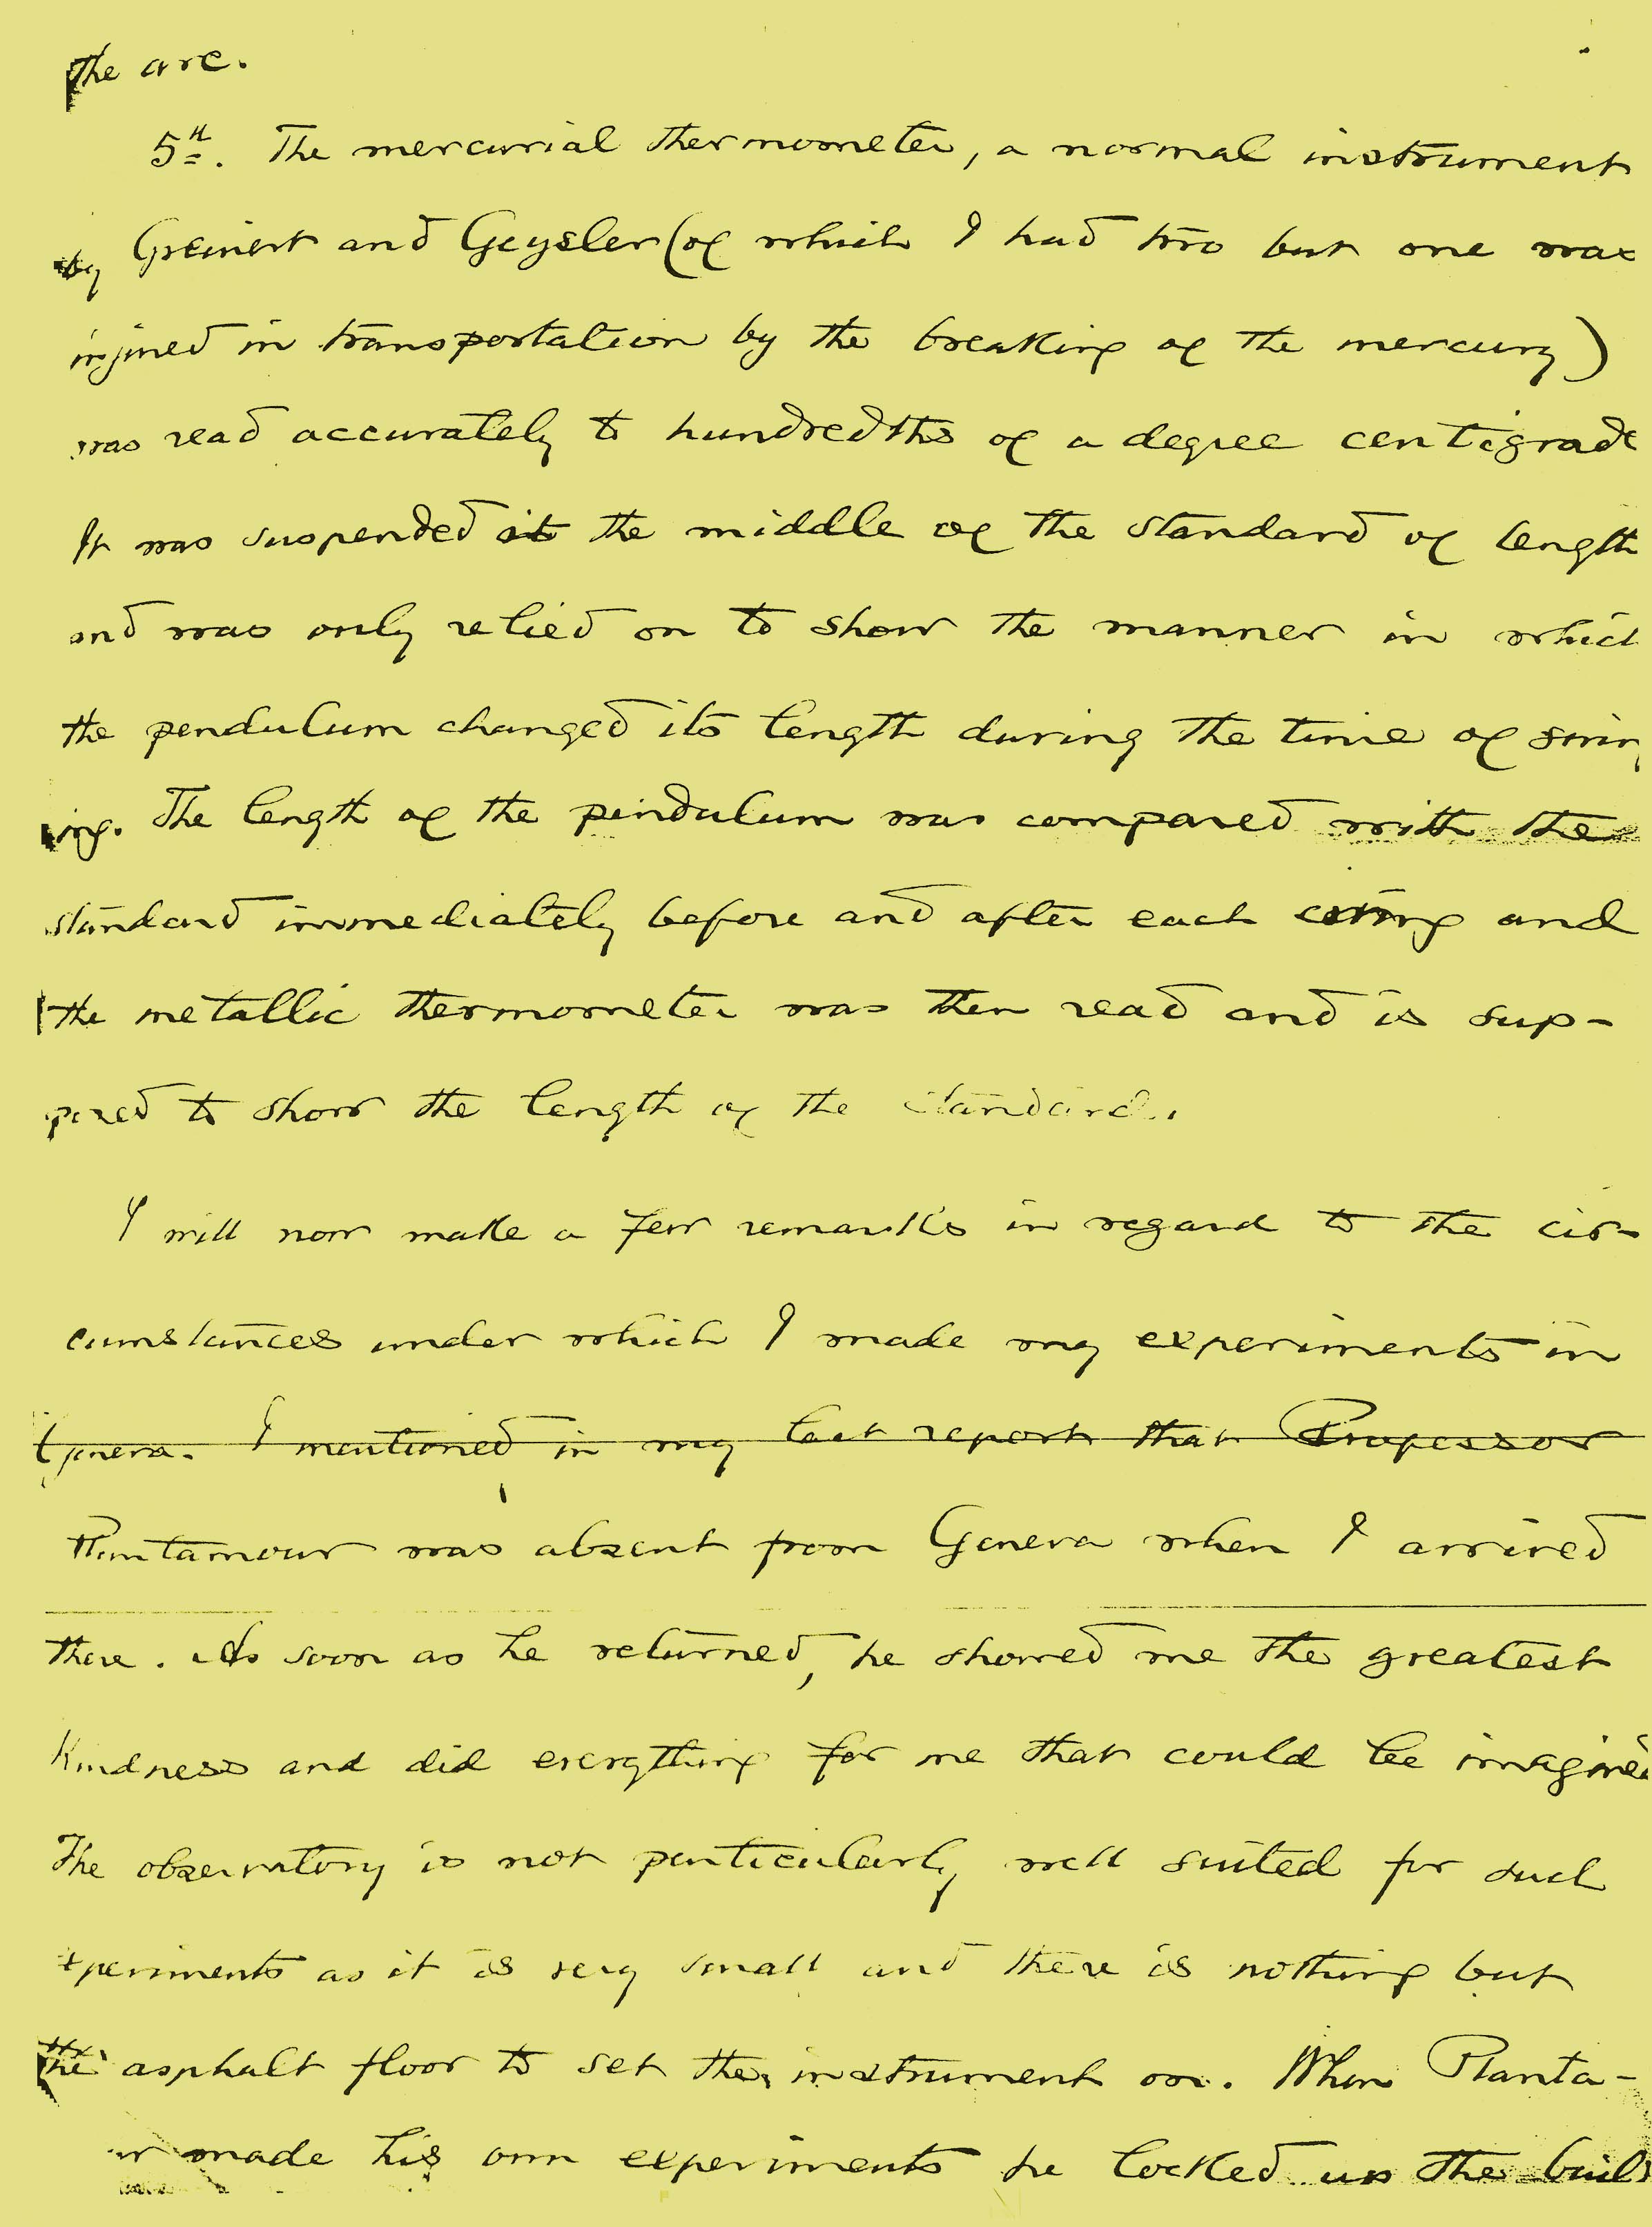 the arc.
5th. The mercurial thermometer, a normal instrument
by Greinert and Geysler (of which I had two but one was
injured in transportation by the breaking of the mercury)
was read accurately to hundredths of a degree centigrade
It was suspended at the middle of the standard of length
and was only relied on to show the manner in which
the pendulum changed its length during the time of swing
ing. The length of the pendulum was compared with the
standard immediately before and after each swing and
the metallic thermometer was then read and is sup-
posed to show the length of the standard.
I will now make a few remarks in regard to the cir-
cumstances under which I made my experiments in
Geneva. I mentioned in my last report that Professor
Plantamour was absent from Geneva when I arrived
there. As soon as he returned, he showed me the greatest
kindness and did everything for me that could be imagined
The observatory is not particularly well suited for such
experiments as it is very small and there is nothing but
the asphalt floor to set the instrument on. When Planta-
ur made his own experiments he locked up the build